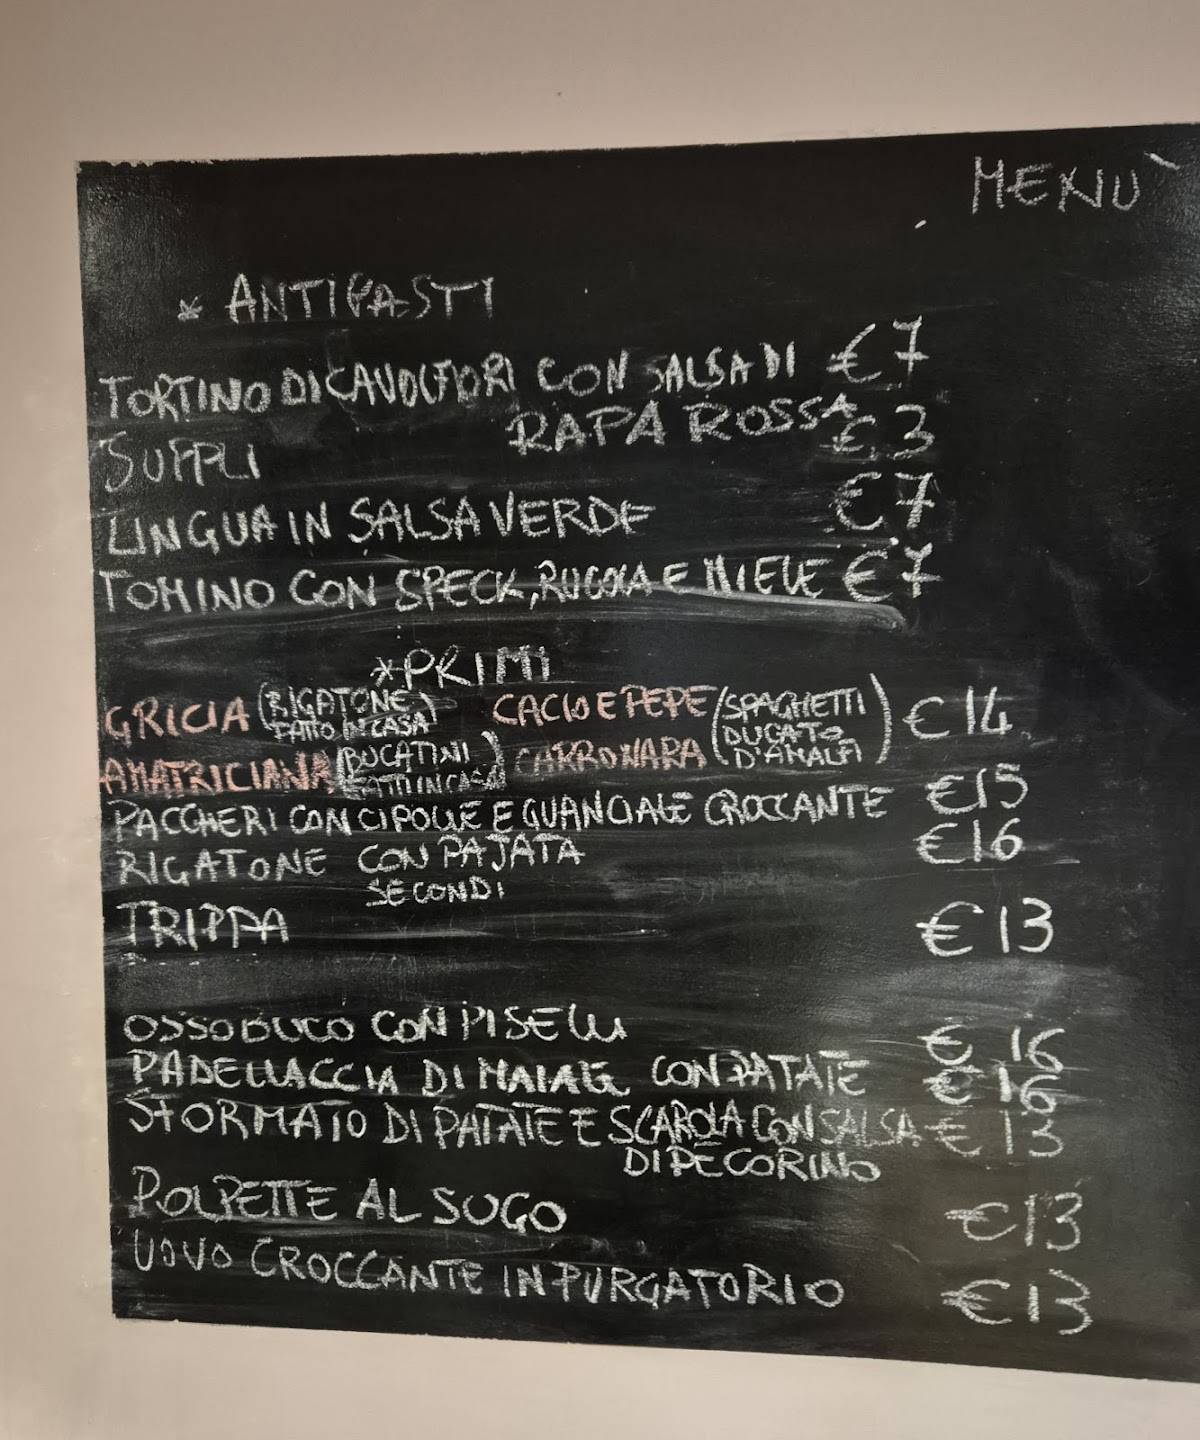 MENU`
* ANTIPASTI
TORTINO DI CAVOLFIORI CON SALSA DI € 7
RAPA ROSSA
SUPPLI € 3
LINGUA IN SALSA VERDE € 7
TOMINO CON SPECK, RUCOLA E MIELE € 7
*PRIMI
GRICIA (RIGATONE FATTO IN CASA) CACIO E PEPE (SPAGHETTI DUCATO D'AMALFI) € 14
AMATRICIANA (BUCATINI FATTI IN CASA) CARBONARA
PACCHERI CON CIPOLLE E GUANCIALE CROCCANTE € 15
RIGATONE CON PAJATA € 16
SECONDI
TRIPPA € 13
OSSOBUCO CON PISELLI € 16
PADELLACCIA DI MAIALE CON PATATE € 16
SFORMATO DI PATATE E SCAROLA CON SALSA € 13
DI PECORINO
POLPETTE AL SUGO € 13
UOVO CROCCANTE IN PURGATORIO € 13